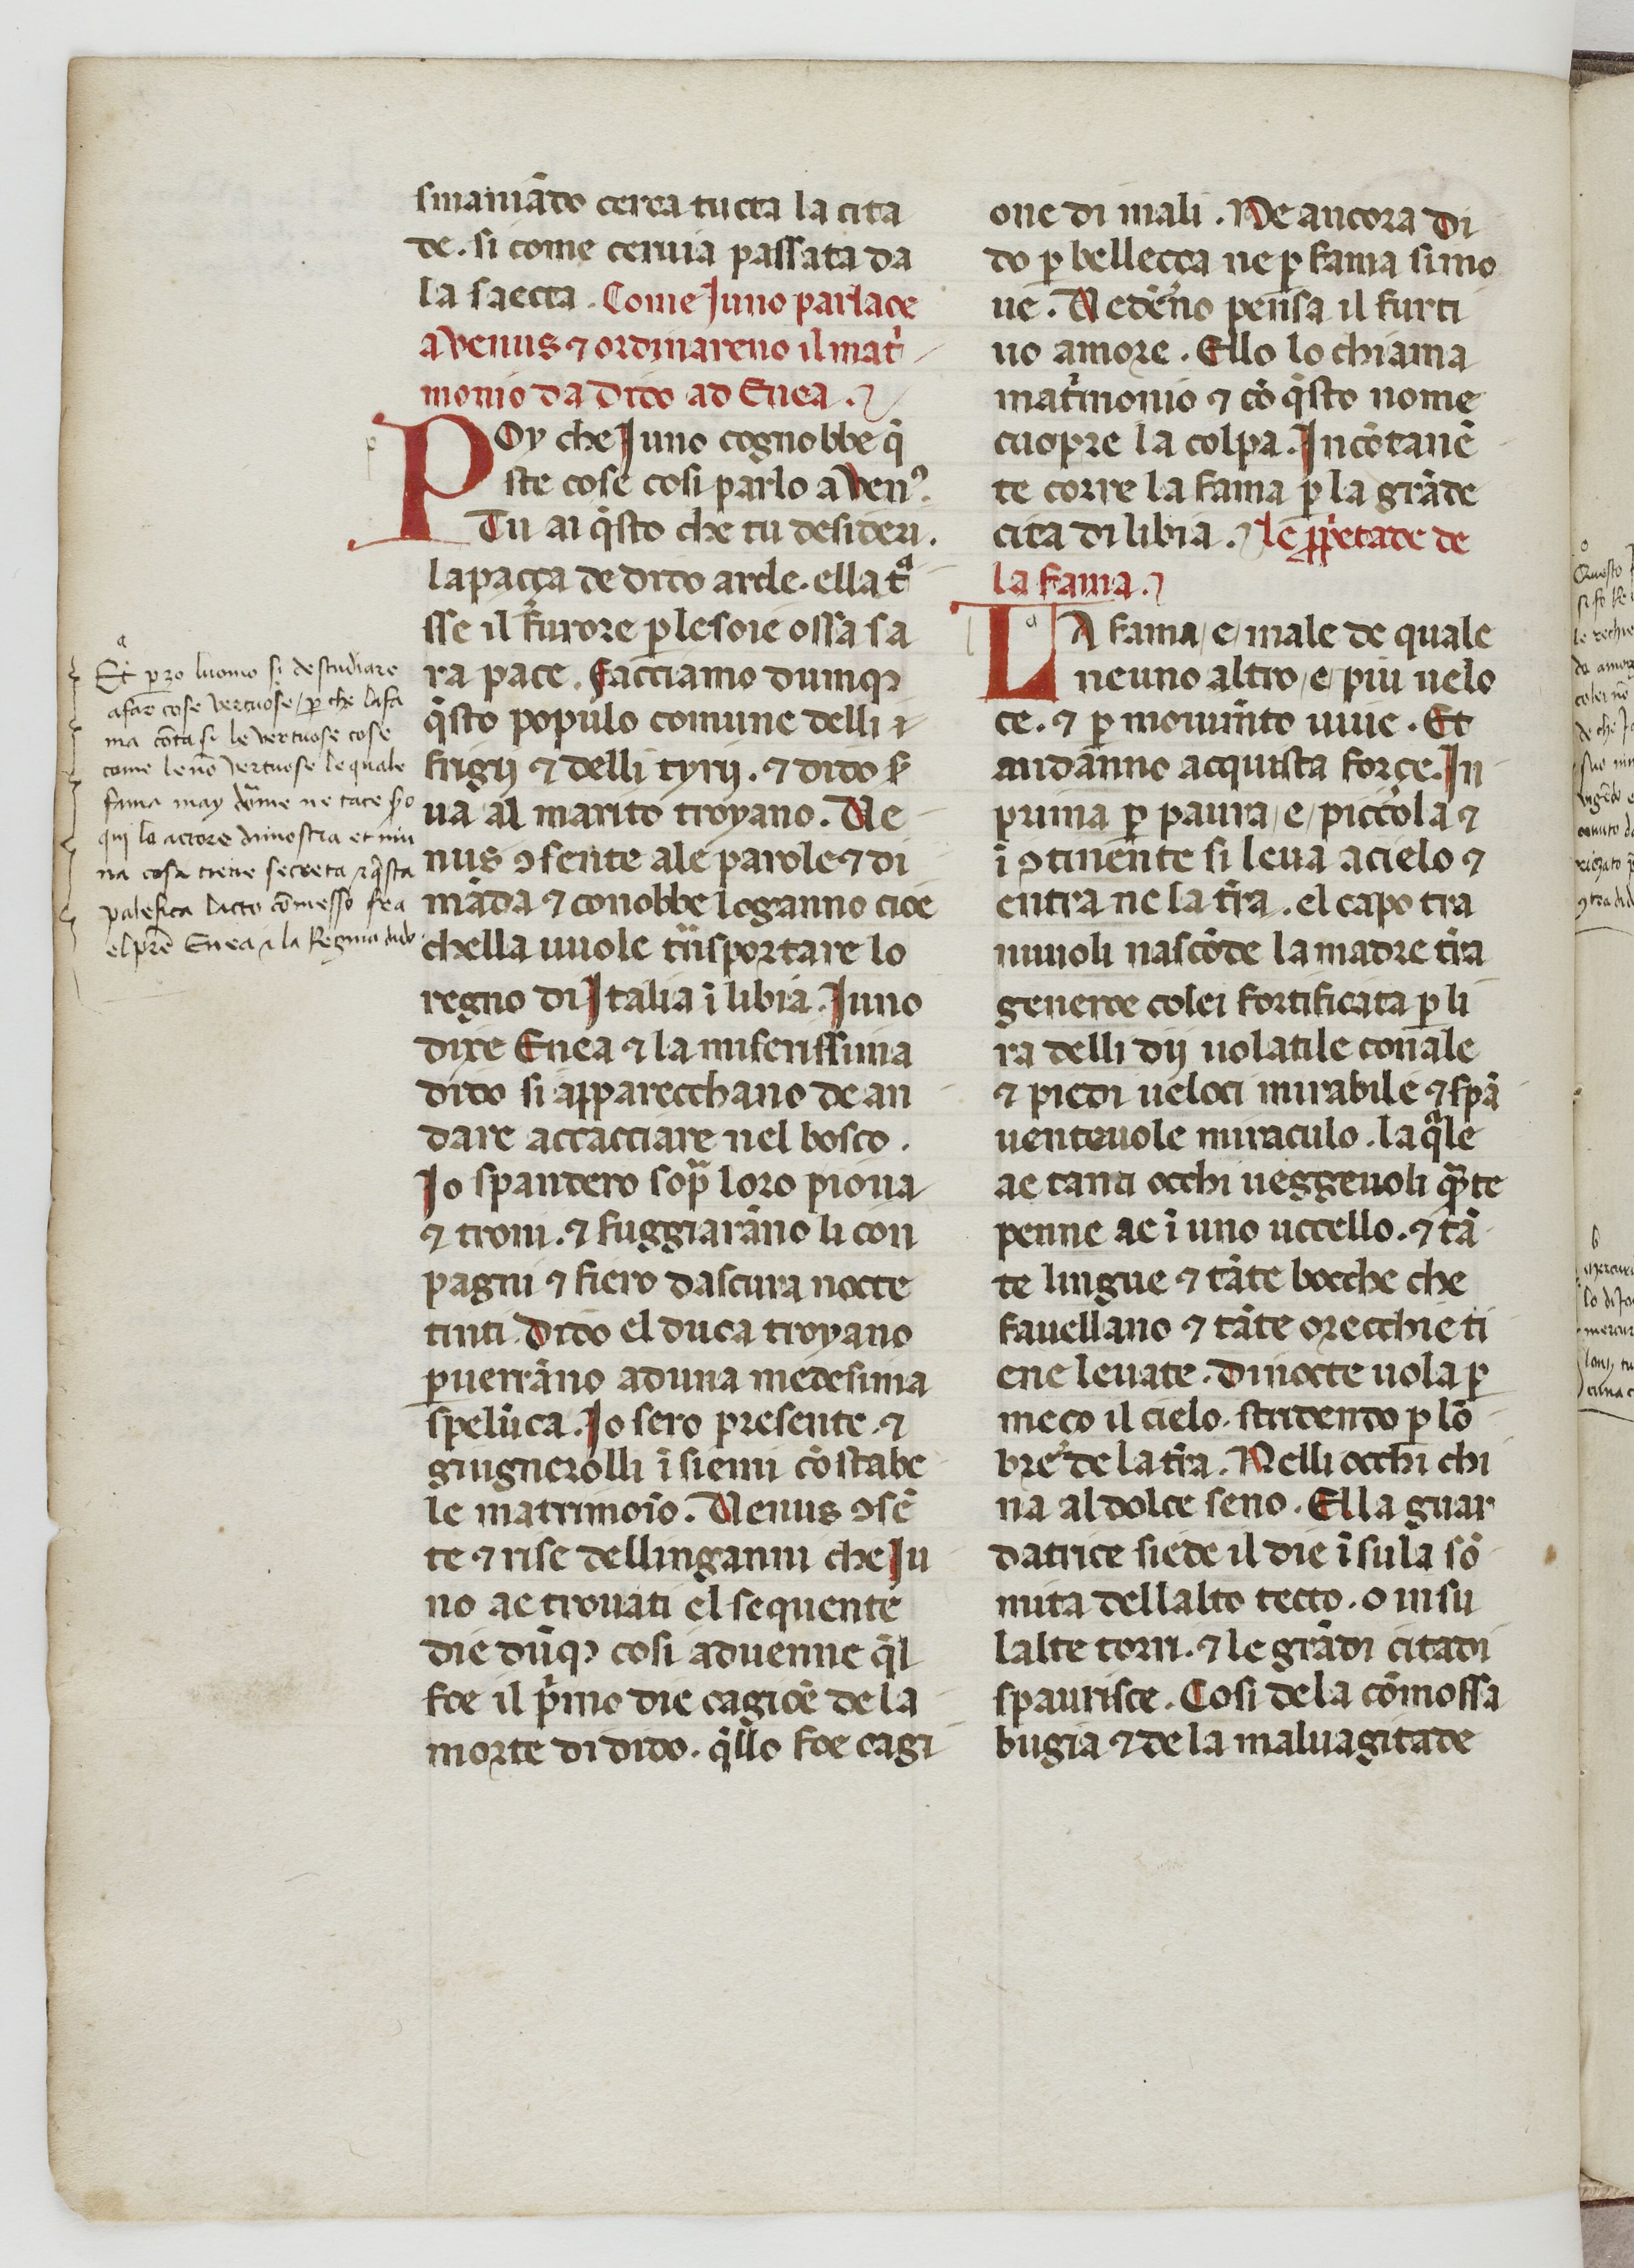 smaniādo cerca tucta la cita
de. si come ceruia passata da
la saecta. Come Juno parlace
a Venus ⁊ ordinareno il mat'
monio da Dido ad Enea.
POy che Juno cognobbe q̄
ste cose cosi parlo a Venꝰ.
Tu ai q̄sto che tu desideri.
la paçça de dido arde. ella tͣ
sse il furore ꝑ le soie ossa sa
ra pace. facciamo dunqꝫ
q̄sto populo comune delli
frigij ⁊ delli tyrij. ⁊ dido s̄
ua al marito troyano. Ve
nus ꝯsente ale parole ⁊ di
māda ⁊ conobbe loganno cioe
chella uuole tn̄sportare lo
regno di Italia ī libia. Juno
dixe Enea ⁊ la miserissima
dido si apparecchano de an
dare accacciare nel bosco.
Jo spandero sopͣ loro pioua
⁊ troni. ⁊ fuggiarāno li con
pagni ⁊ fiero dascura nocte
tinti. Dido el duca troyano
ꝑuerrāno aduna medesima
spelūca. Jo sero presente. ⁊
giugnerolli īsiemi cōstabe
le matrimoīo. Venus ꝯsē
te ⁊ rise dellinganni che Ju
no ae trouati el sequente
die dūqꝫ cosi aduenne q̄l
foe il p'mo die cagiōe de la
morte di dido. q̄llo foe cagi
one di mali. Ne ancora Di
do ꝑ bellecça ne ꝑ fama simo
ue. Ne dēn̄o pensa il furti
uo amore. Ello lo chiama
mat'monio ⁊ cō q̄sto nome
cuopre la colpa. Incōtanē
te corre la fama ꝑ la grāde
cita di libia. le ꝓp'etade de
la fama.
LA fama/e/male de quale
neuno altro/e/piu uelo
ce. ⁊ ꝑ mouim̄to uiue. Et
andānno acquista forçe. In
prima ꝑ paura/e/piccola ⁊
ī ꝯtinente si leua acielo ⁊
entra ne la tr̄a. el capo tra
nuuoli nascōde la madre tr̄a
generoe colei fortificata ꝑ li
ra delli dij uolatile con ale
⁊ piedi ueloci mirabile ⁊ spā
uenteuole miraculo. la q̄le
ae tanti occhi ueggeuoli qͣte
penne ae ī uno uccello. ⁊ tā
te lingue ⁊ tāte bocche che
fauellano ⁊ tāte orecchie ti
ene leuate. Di nocte uola ꝑ
meço il cielo. stridendo ꝑ lō
bre de la tr̄a. Nelli occhi chi
na al dolce seno. Ella guar
datrice siede il die ī sula sō
mita dellalto tecto. o in su
lalte torri. ⁊ le grādi citadi
spaurisce. Cosi de la cōmossa
bugia ⁊ de la maluagitade
a
Et ꝑzo luomo si de studiare
afar cose vertuose/ꝑ che la fa
ma cōta si le vertuose cose
come le nō vertuose le quale
fama may ne tace
qui lo actore dimostra et niu
na cosa tiene secreta ⁊ q̄sta
palesica lacto cōmesso fra
Enea ⁊ la Regina dido